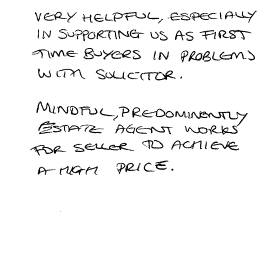 VERY HELPFUL, ESPECIALLY
IN SUPPORTING US AS FIRST
TIME BUYERS IN PROBLEMS
WITH SOLICITOR.
MINDFUL, PREDOMINENTLY
ESTATE AGENT WORKS
FOR SELLER TO ACHIEVE
A HIGH PRICE.